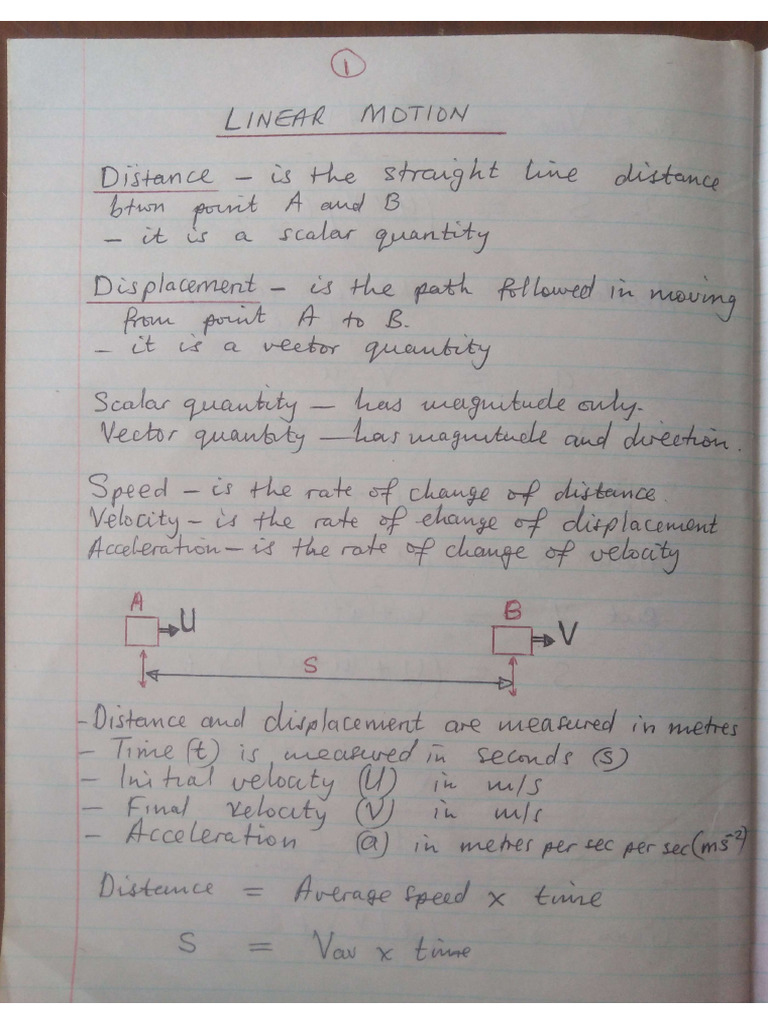 1
LINEAR MOTION
Distance - is the straight line distance
btwn point A and B
- it is a scalar quantity
Displacement - is the path followed in moving
from point A to B.
- it is a vector quantity
Scalar quantity - has magnitude only.
Vector quantity - has magnitude and direction.
Speed - is the rate of change of distance.
Velocity - is the rate of change of displacement
Acceleration - is the rate of change of velocity
A U B V
S
- Distance and displacement are measured in metres
- Time (t) is measured in seconds (s)
- Initial velocity (U) in m/s
- Final velocity (V) in m/s
- Acceleration (a) in metres per sec per sec (ms⁻²)
Distance = Average speed x time
S = Vav x time